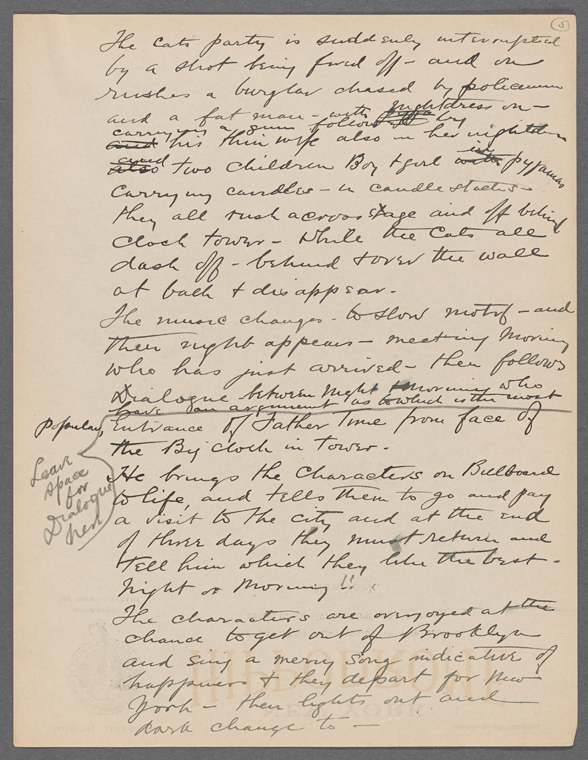 5
The cats party is suddenly interrupted
by a shot being fired off - and on
rushes a burglar chased by policeman
and a fat man - with nightdress on -
carrying a gun follow by
his thin wife also in her nightdress
and two children Boy + girl in pyjamas
carrying candles - in candlesticks -
they all rush across stage and off behind
clock tower - While the Cats all
dash off - behind + over the wall
at back + disappear.
The music changes - to slow motif - and
then night appears - meeting Morning
who has just arrived - then follows
Dialogue between Night + Morning who
have an argument as to which is the most
Popular,
Entrance of Father Time from face of
the Big clock in Tower.
Leave
space
for
Dialogue
here
He brings the Characters on Billboard
to life, and tells them to go and pay
a visit to the city and at the end
of three days they must return and
tell him which they like the best -
Night or Morning !!
The characters are overjoyed at the
chance to get out of Brooklyn
and sing a merry song indicative of
happiness + they depart for New
York - then lights out and
dark change to -